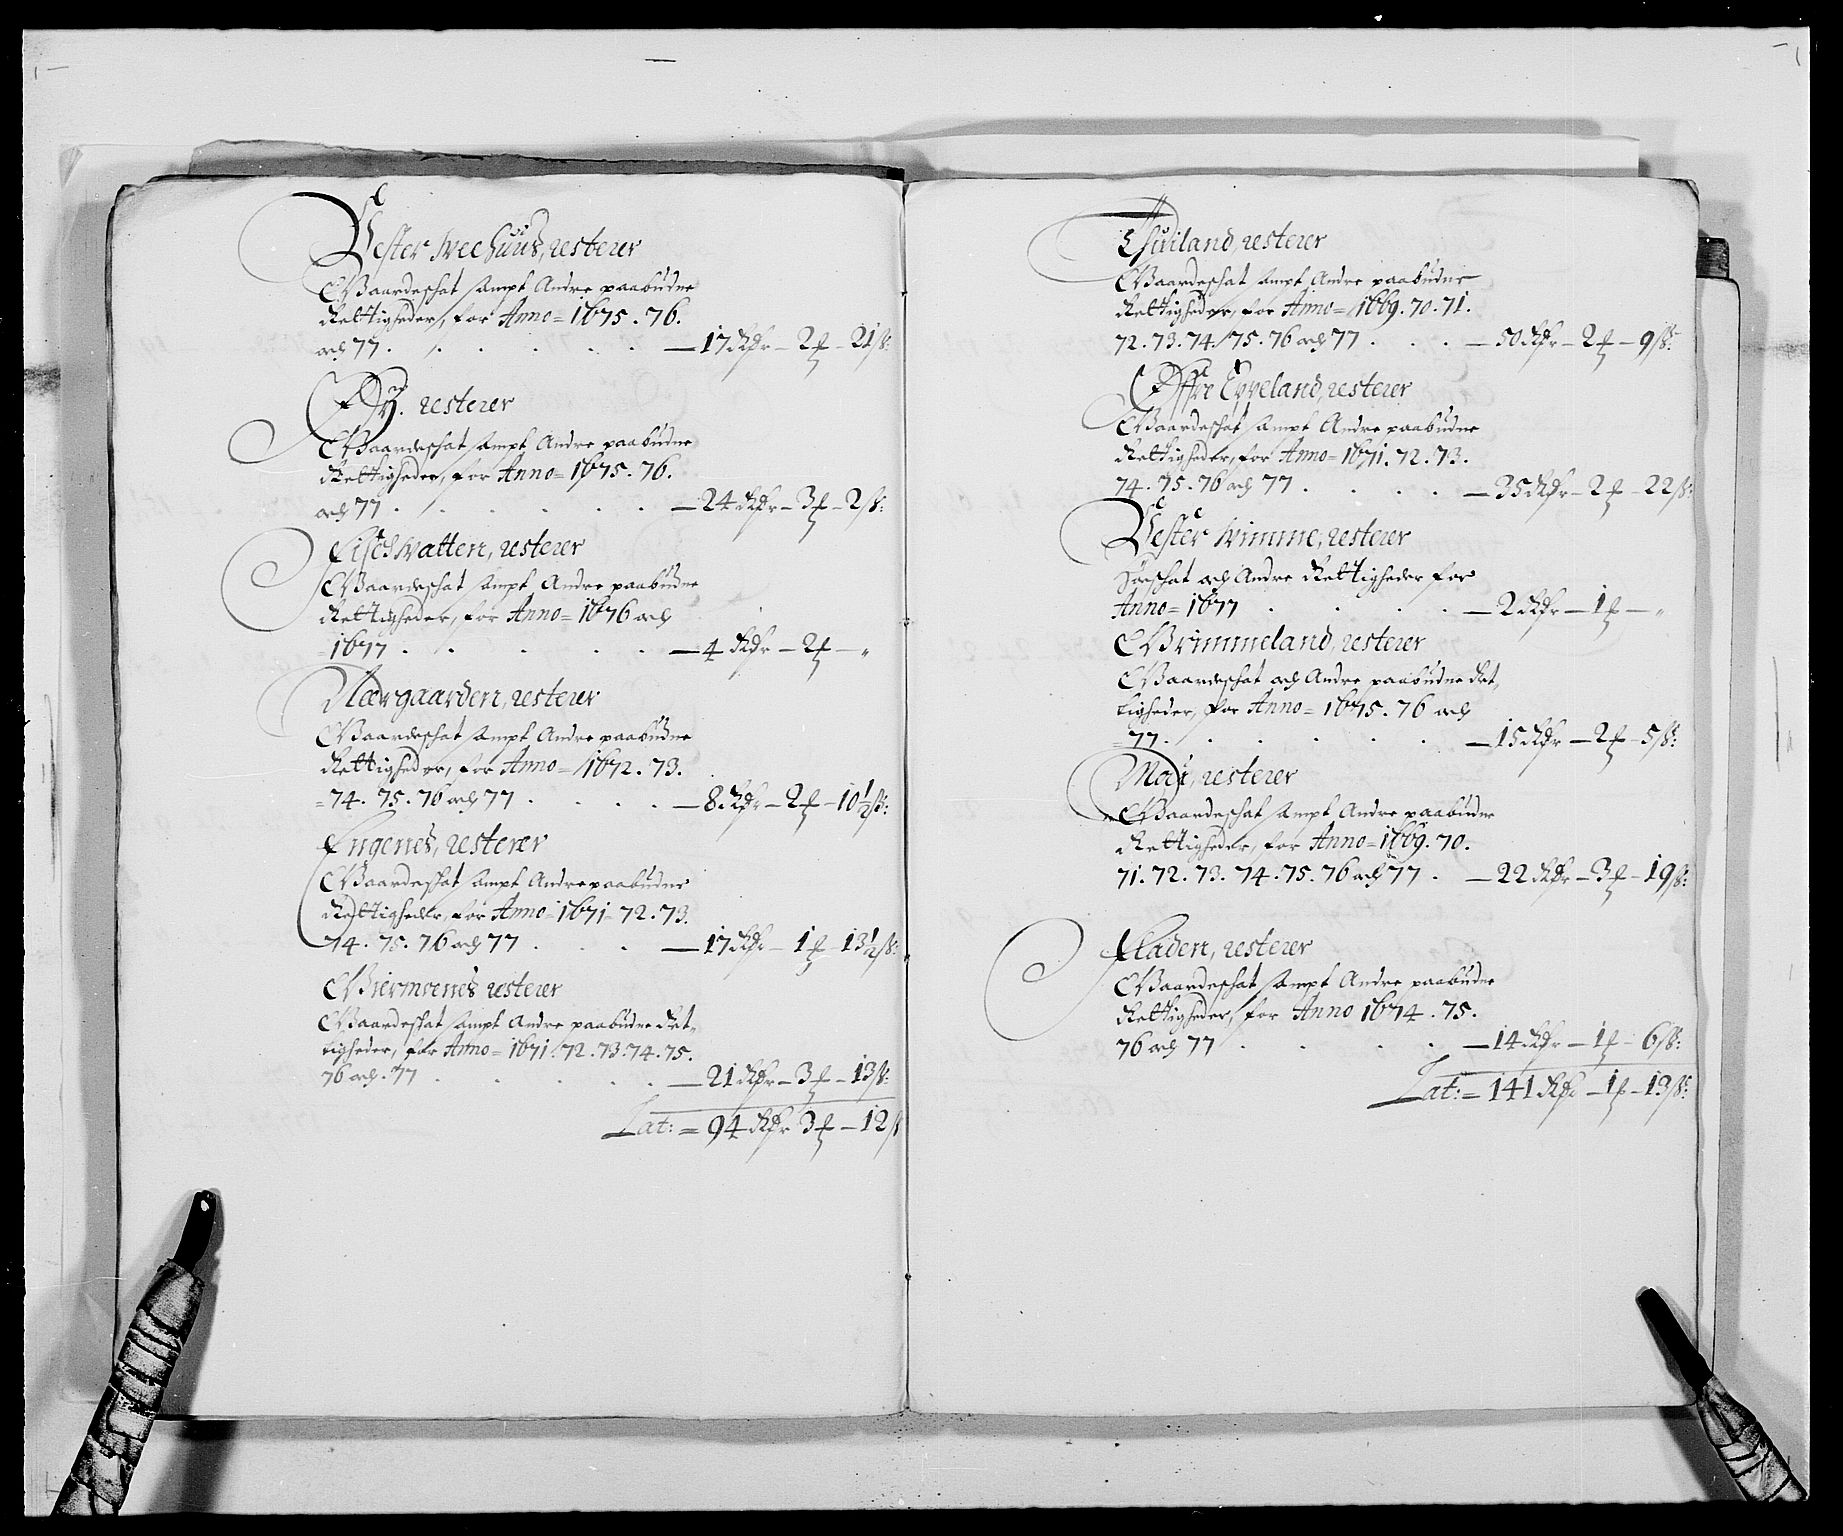 Vester Weehuus, resterer
Gaardeschat sampt Andre paabudne
Rettigheder, for Anno = 1675. 76.
och 77. — 17 Rdr — 2 ſ — 21 ß:
Bÿ. resterer
Gaardeschat sampt Andre paabudne
Rettigheder, for Anno = 1675. 76.
och 77. — 24 Rdr — 3 ſ — 2 ß:
Fischvatten, resterer
Gaardeschat sampt Andre paabudne
Rettigheder, for Anno = 1676 och
= 1677. — 4 Rdr — 2 ſ — „
Nærgaarden, resterer
Gaardeschat sampt Andre paabudne
Rettigheder, for Anno = 1672. 73.
= 74. 75. 76 och 77. — 8 Rdr — 2 ſ — 10 1/2 ß:
Engenes, resterer
Gaardeschat sampt Andre paabudne
Rettigheder, for Anno = 1671 = 72. 73.
74. 75. 76 och 77. — 17 Rdr — 1 ſ — 13 1/2 ß:
Giermoenes resterer
Gaardeschat sampt Andre paabudne Ret,
tigheder, for Anno = 1671. 72. 73. 74. 75.
76 och. 77. — 21 Rdr — 3 ſ — 13 ß:
Lat: = 94 Rdr 3 ſ — 12 ß
resterer
Gaardeschat sampt Andre paabudne
Rettigheder, for Anno = 1669. 70. 71.
72. 73. 74. 75. 76 och 77. — 50 Rdr — 2 ſ — 9 ß:
Øffre Eppeland, resterer
Gaardeschat sampt Andre paabudne
Rettigheder, for Anno = 1671. 72. 73.
74. 75. 76 och 77. — 35 Rdr — 2 ſ — 22 ß:
Vester Wimme, resterer
Høeschat och Andre Rettigheder for
Anno = 1677. — 2 Rdr — 1 ſ — „
Grimmeland, resterer
Gaardeschat och Andre paabudne Ret,
tigheder, for Anno = 1675. 76 och
= 77. — 15 Rdr — 2 ſ — 5 ß:
Moÿ, resterer
Gaardeschat sampt Andre paabudne
Rettigheder, for Anno = 1669. 70.
71. 72. 73. 74. 75. 76 och 77. — 22 Rdr — 3 ſ — 19 ß:
Fladen, resterer
Gaardeschat sampt Andre paabudne
Rettigheder, for Anno 1674. 75.
76 och 77. — 14 Rdr — 1 ſ — 6 ß:
Lat: = 141 Rdr — 1 ſ — 13 ß: